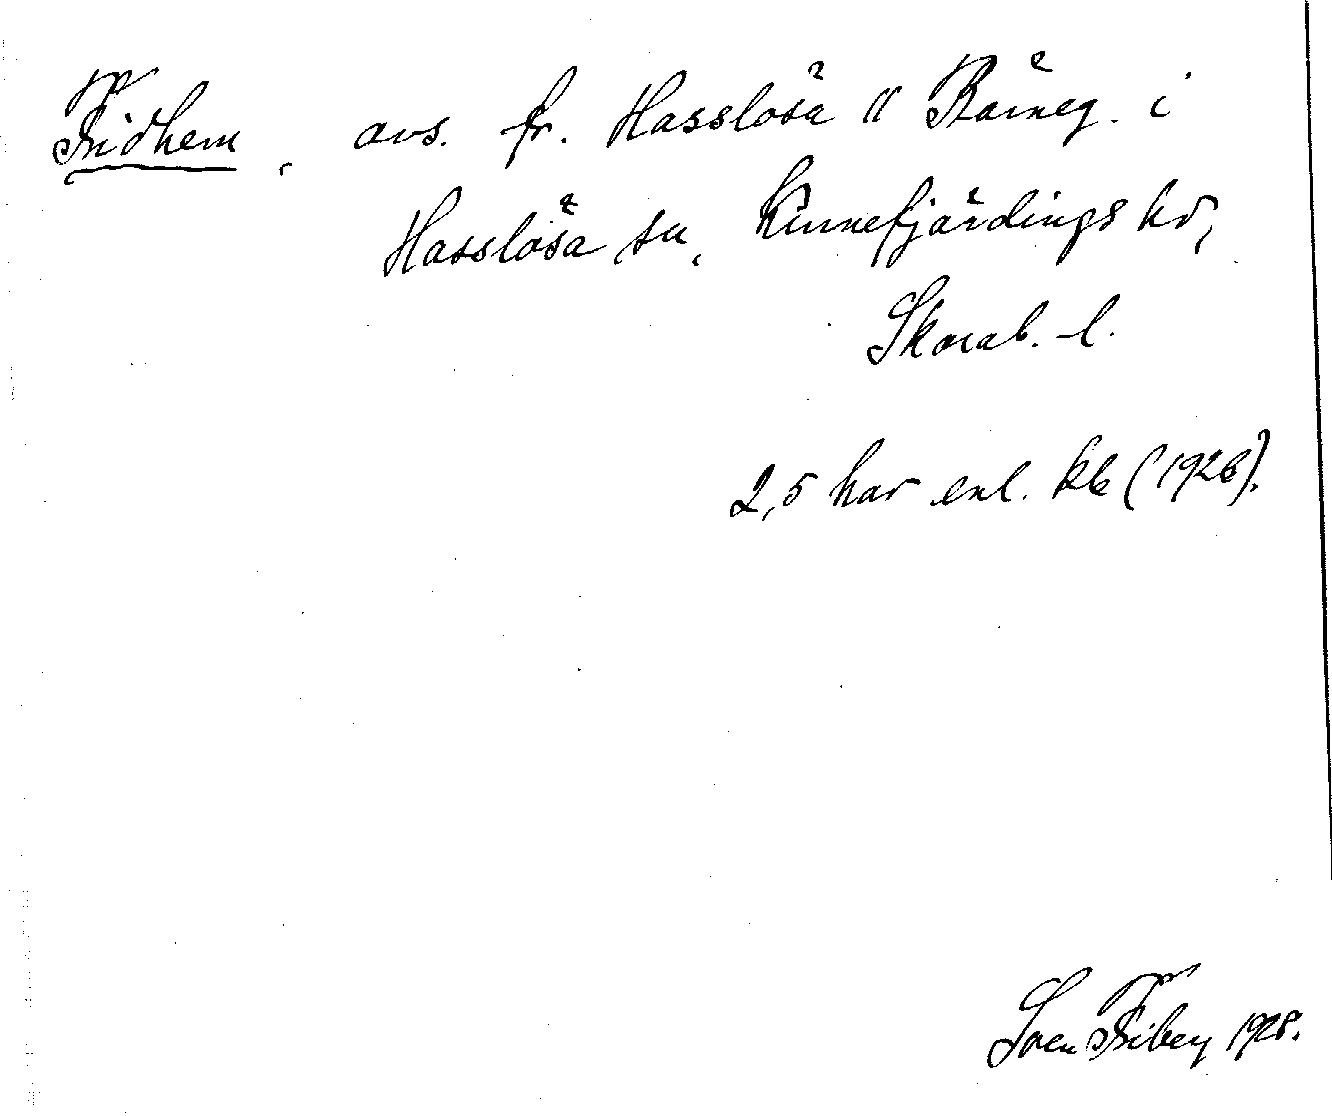 Fridhem, avs. fr. Hasslösa 11 Bäneg. i
Hasslösa sn, Kinnefjärdings hd,
Skarab. l.
2,5 har enl. kb (1926).
Sven Fribey 1928.